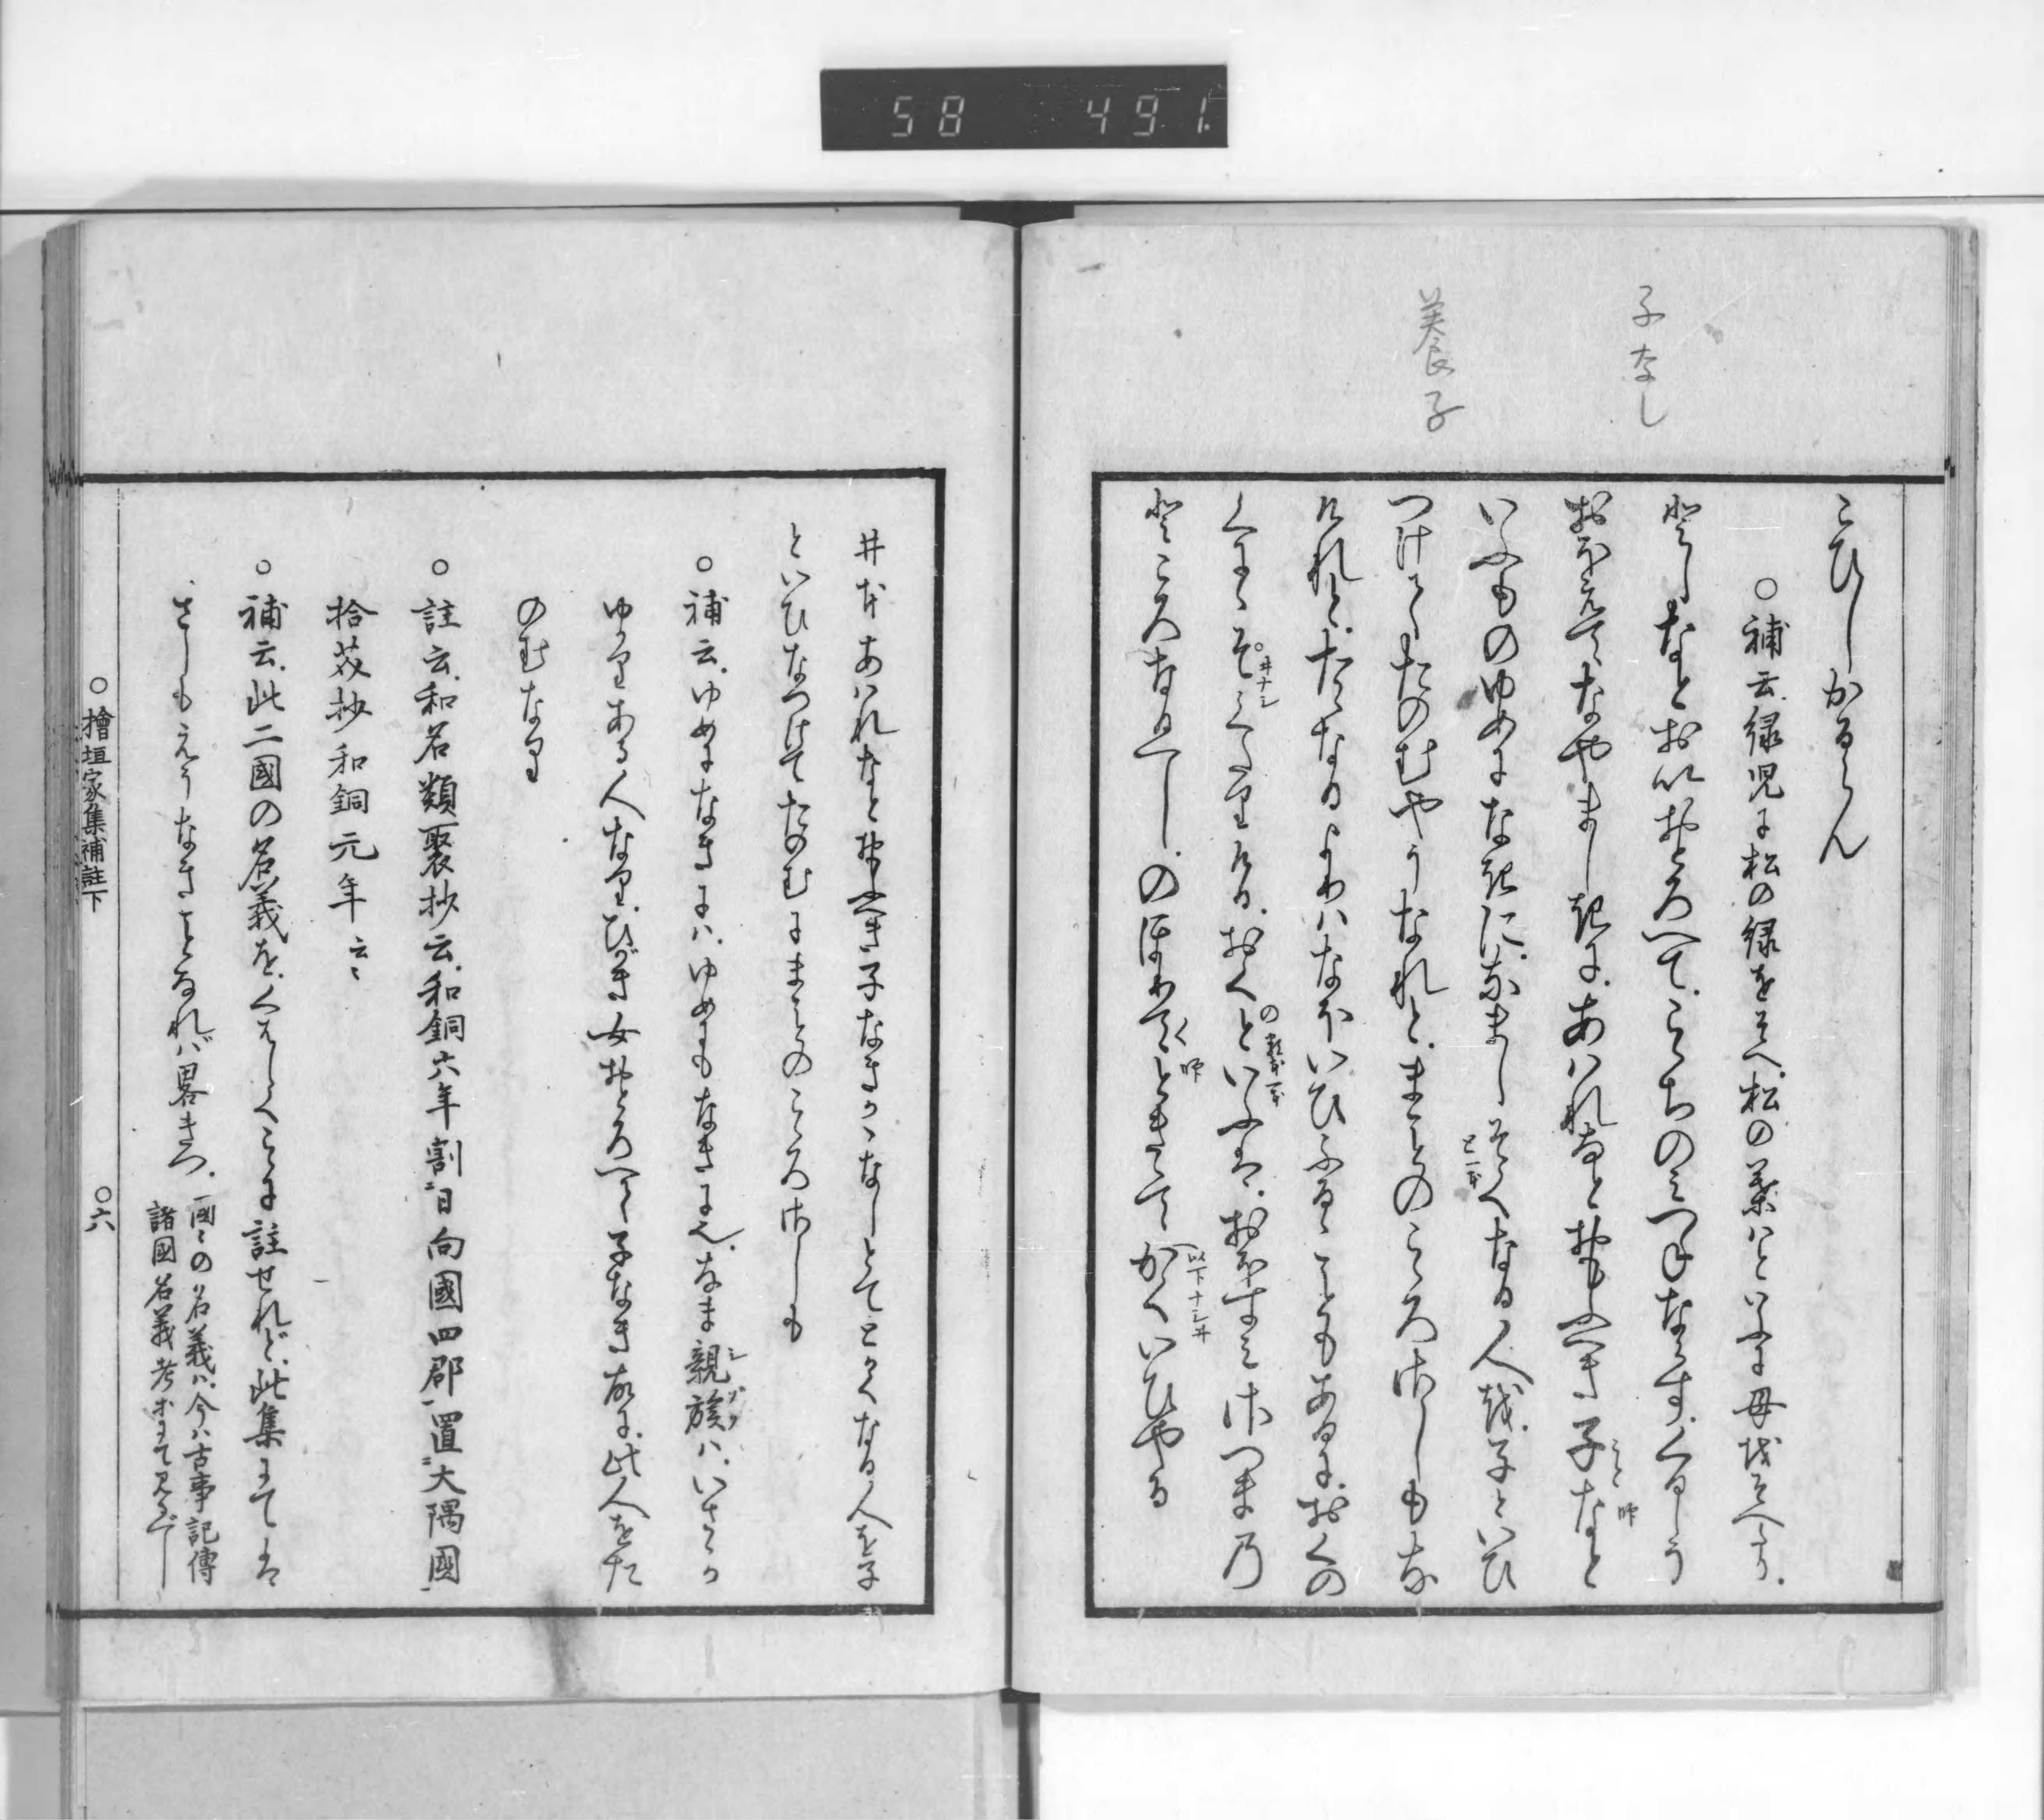 58 491.
子なし
養子
こひしかるらん
○補云、緑児に松の緑をそへ、松の葉はといふに母をそへたり、
としなとおいおとろへて、こゝちのつねならす、くるしう
おほえてなやましきに、あはれなとおもふへき子なと
いふものゆめになきに、なましそくなる人を、子といひ
つけてたのむやうなれと、まことのこゝろさしもな
けれと、たゝなるよりはなほいひふるゝこともあるに、おくの
くにゝそくたりける、おくといふは、おほすみさつまの
ところなるへし、のほりてときゝてかくいひやる
井本あはれなとおもふへき子なきかゝなしとてとかくなる人を子
といひなつけてたのむにまことのこゝろさしも
○補云、ゆめになきには、ゆめにもなきにえ、なま親族は、いさゝか
ゆかりある人なり、ひがき女おとろへて子なき故に、此人をた
のむなり
○註云、和名類聚抄云、和銅六年割日向國四郡置大隅國、
拾芥抄和銅元年云々
○補云、此二國の名義を、くはしくこゝに註せれど、此集にては
さしもえうなきことなれバ畧きつ、
國々の名義ハ、今ハ古事記傳
諸國名義考等にて見るべし
○檜垣家集補註下
○六